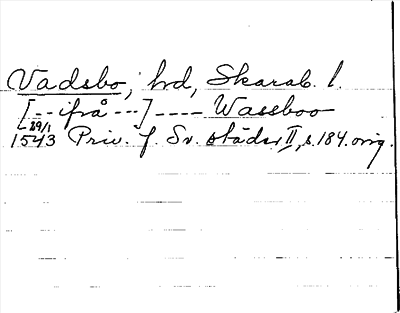 Vadsbo, hd, Skarab. l.
[--ifrå---] ---- Wassboo
29/1
1543 Priv. f. Sv. städer II, s. 184. orig.